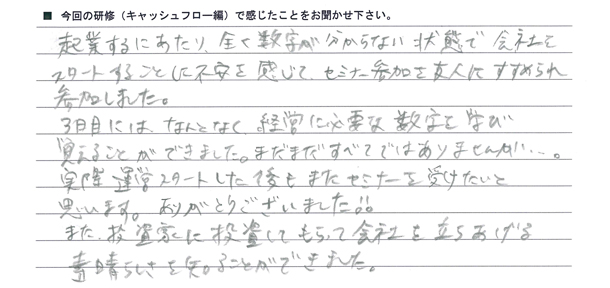 ■ 今回の研修（キャッシュフロー編）で感じたことをお聞かせ下さい。
起業するにあたり、全く数字が分からない状態で会社を
スタートすることに不安を感じて、セミナー参加を友人にすすめられ
参加しました。
3日目には、なんとなく、経営に必要な数字を学び
覚えることができました。まだまだすべてではありませんが…。
実際運営スタートした後もまたセミナーを受けたいと
思います。ありがとうございました!!
また、投資家に投資してもらって会社を立ちあげる
素晴らしさを知ることができました。